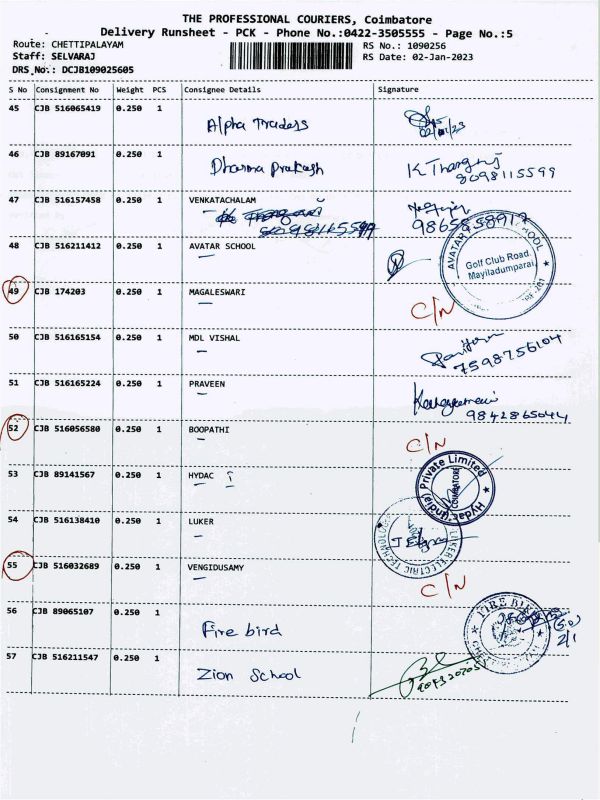 THE PROFESSIONAL COURIERS, Coimbatore
Delivery Runsheet - PCK - Phone No.:0422-3505555 - Page No.:5
Route: CHETTIPALAYAM RS No.: 1090256
Staff: SELVARAJ RS Date: 02-Jan-2023
DRS No.: DCJB109025605
S No Consignment No Weight PCS Consignee Details Signature
45 CJB 516065419 0.250 1
Alpha Traders
46 CJB 89167091 0.250 1
Dharma Prakash
K Thangaraj
8098115599
47 CJB 516157458 0.250 1 VENKATACHALAM
9865858917
48 CJB 516211412 0.250 1 AVATAR SCHOOL
AVATAR SCHOOL
Golf Club Road,
Mayiladumparai
49 CJB 174203 0.250 1 MAGALESWARI
C/N
50 CJB 516165154 0.250 1 MDL VISHAL
7598756104
51 CJB 516165224 0.250 1 PRAVEEN
9842865044
52 CJB 516056580 0.250 1 BOOPATHI
C/N
53 CJB 89141567 0.250 1 HYDAC
Hydac (India) Private Limited
COIMBATORE
54 CJB 516138410 0.250 1 LUKER
LUKER ELECTRIC TECHNOLOGI
55 CJB 516032689 0.250 1 VENGIDUSAMY
C/N
56 CJB 89065107 0.250 1
Fire bird
FIRE BIRD
2/1
57 CJB 516211547 0.250 1
Zion School